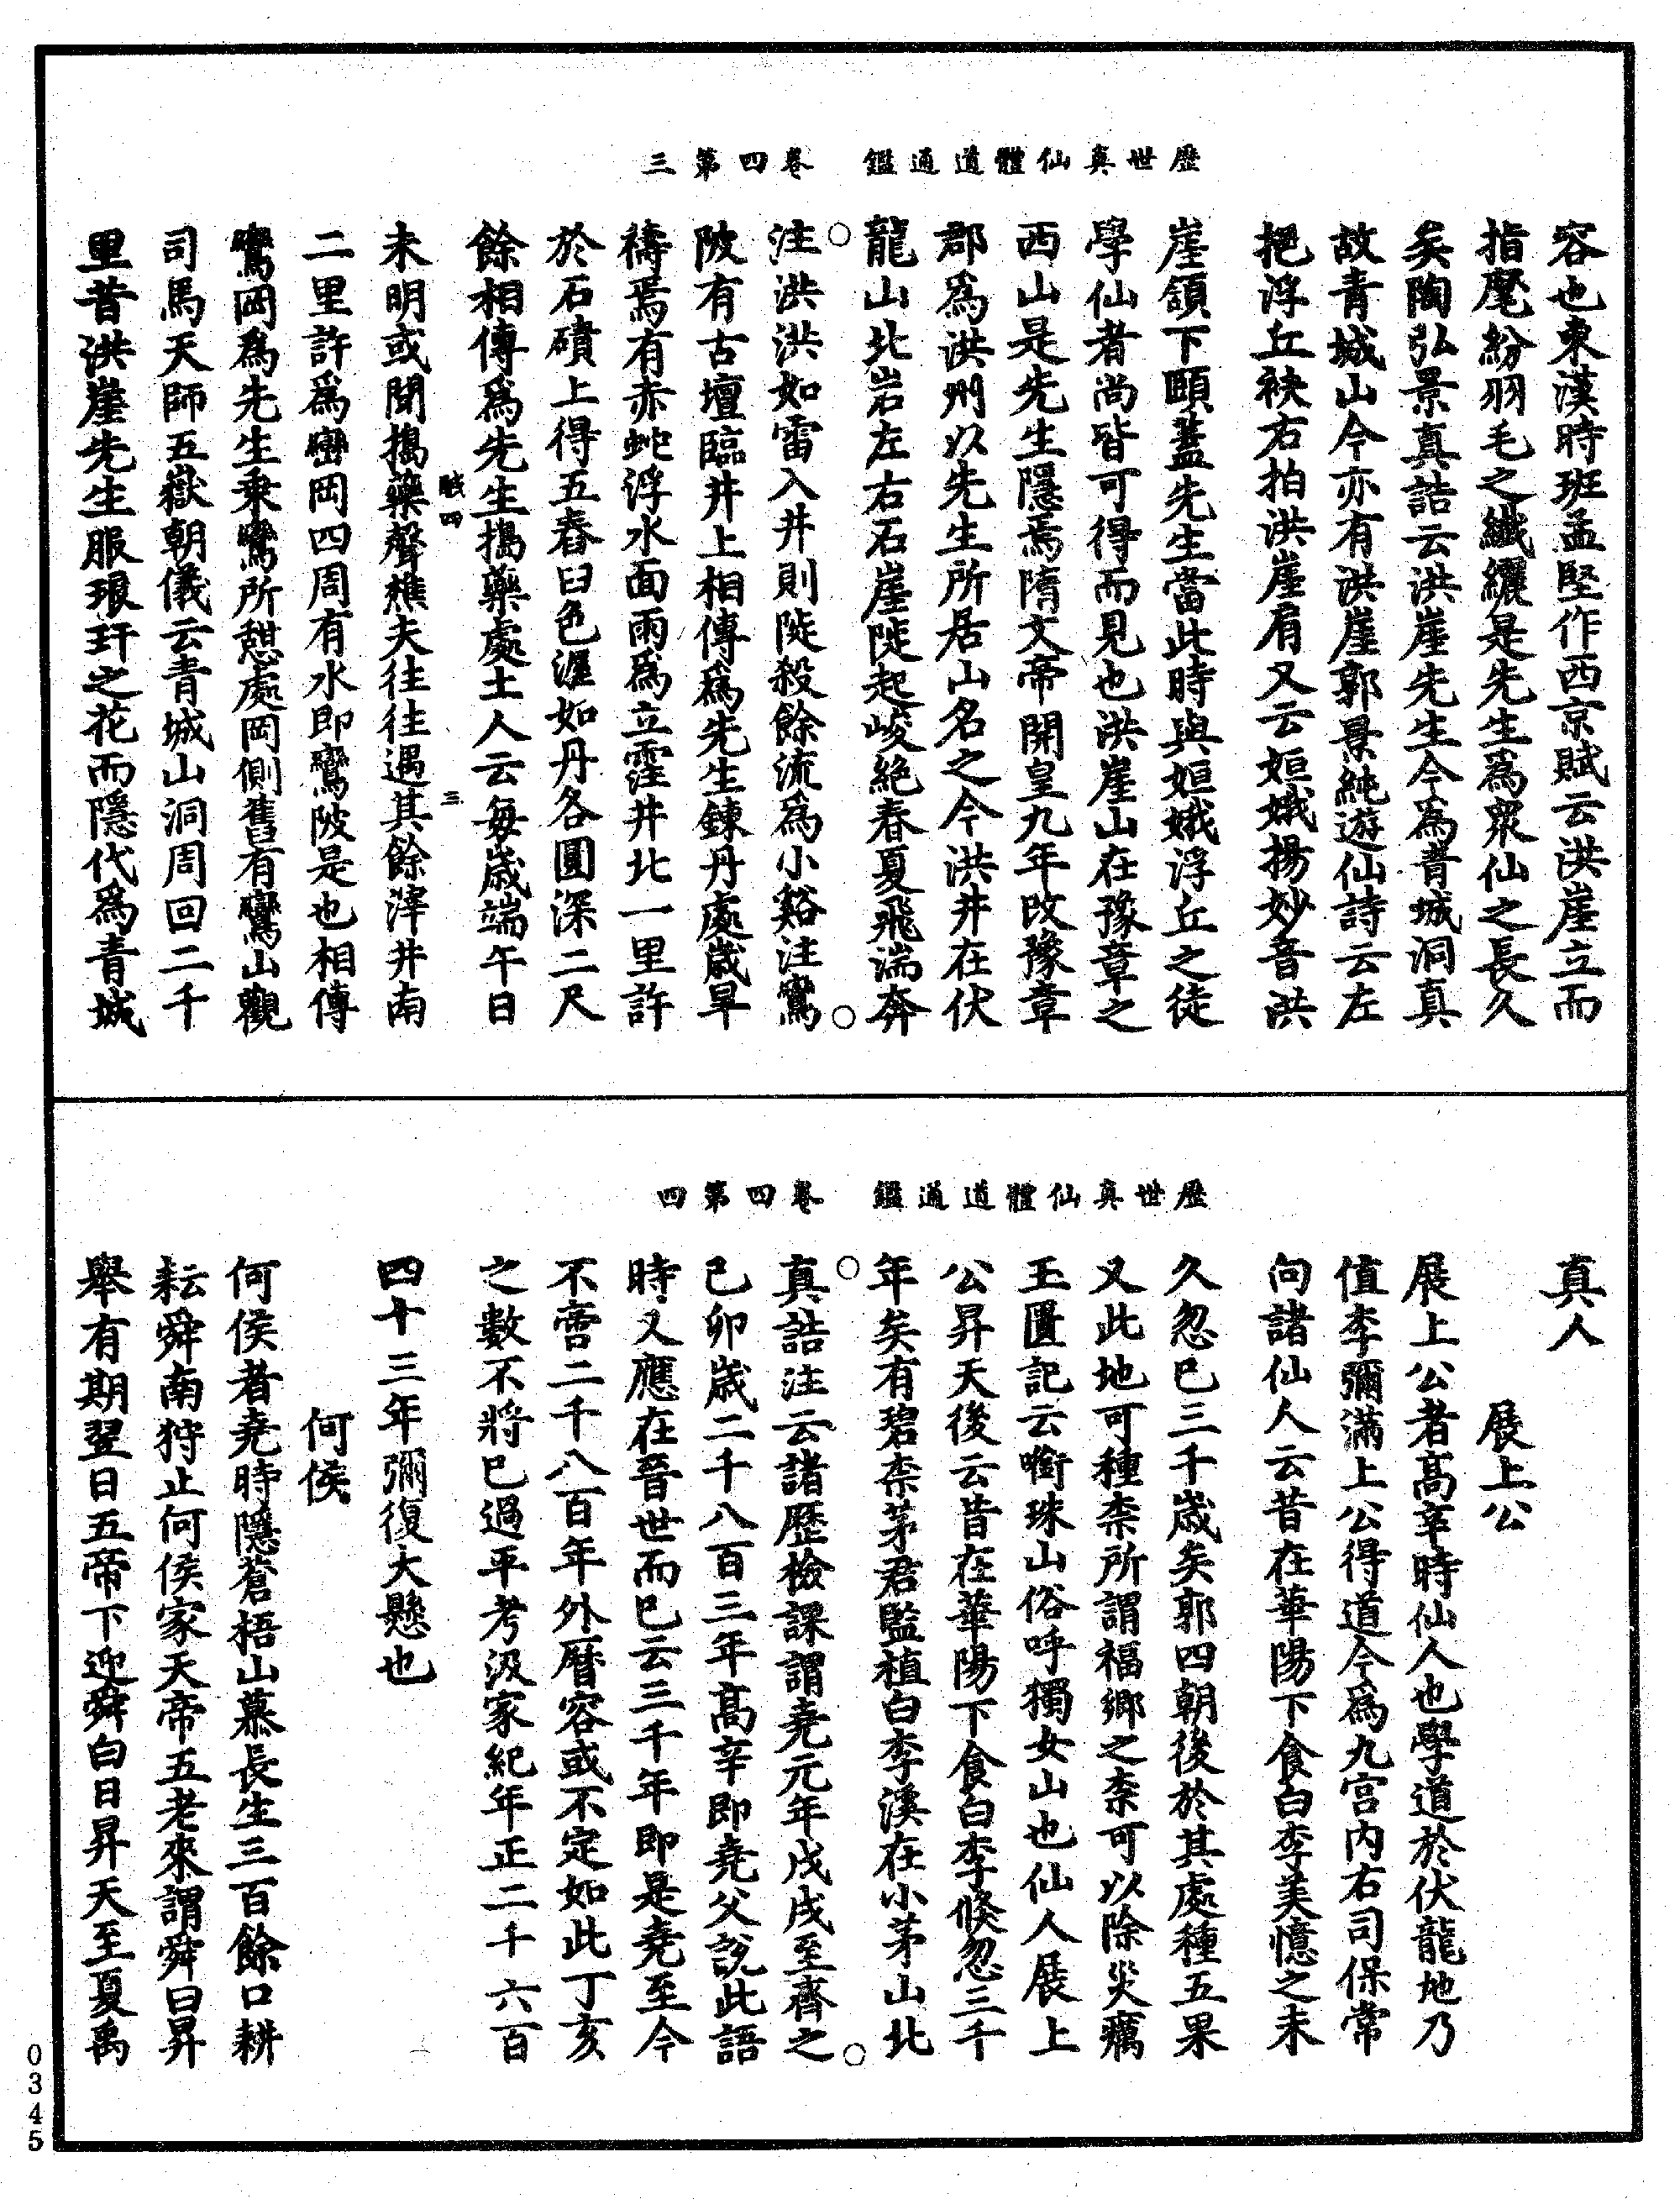 歷世真仙體道通鑑　卷四第三
容也東漢時班孟堅作西京賦云洪崖立而
指麾紛羽毛之纖纚是先生為衆仙之長久
矣陶弘景真誥云洪崖先生今為青城洞真
故青城山今亦有洪崖郭景純遊仙詩云左
挹浮丘袂右拍洪崖肩又云姮娥揚妙音洪
崖頷下頤蓋先生當此時與姮娥浮丘之徒
學仙者尚皆可得而見也洪崖山在豫章之
西山是先生隱焉隋文帝開皇九年改豫章
郡為洪州以先生所居山名之今洪井在伏
龍山北岩左右石崖陡起峻絕春夏飛湍奔
注洪洪如雷入井則陡殺餘流為小谿注鸞
陂有古壇臨井上相傳為先生鍊丹處歲旱
禱焉有赤蛇浮水面雨為立霔井北一里許
於石磧上得五舂臼色渥如丹各圓深二尺
餘相傳為先生擣藥處土人云每歲端午日
未明或聞擣藥聲樵夫往往遇其餘滓井南
二里許為巒岡四周有水即鸞陂是也相傳
鸞岡為先生乘鸞所憇處岡側舊有鸞山觀
司馬天師五嶽朝儀云青城山洞周回二千
里昔洪崖先生服琅玕之花而隱代為青城
賊四　三
歷世真仙體道通鑑　卷四第四
真人
展上公
展上公者高辛時仙人也學道於伏龍地乃
值李彌滿上公得道今為九宮內右司保常
向諸仙人云昔在華陽下食白李美憶之未
久忽已三千歲矣郭四朝後於其處種五果
又此地可種柰所謂福鄉之柰可以除災癘
玉匱記云啣珠山俗呼獨女山也仙人展上
公昇天後云昔在華陽下食白李倏忽三千
年矣有碧柰茅君監植白李溪在小茅山北
真誥注云諸歷檢課謂堯元年戊戌至齊之
己卯歲二千八百三年高辛即堯父說此語
時又應在晉世而已云三千年即是堯至今
不啻二千八百年外曆容或不定如此丁亥
之數不將已過乎考汲冢紀年正二千六百
四十三年彌復大懸也
何侯
何侯者堯時隱蒼梧山慕長生三百餘口耕
耘舜南狩止何侯家天帝五老來謂舜曰昇
舉有期翌日五帝下迎舜白日昇天至夏禹
0345